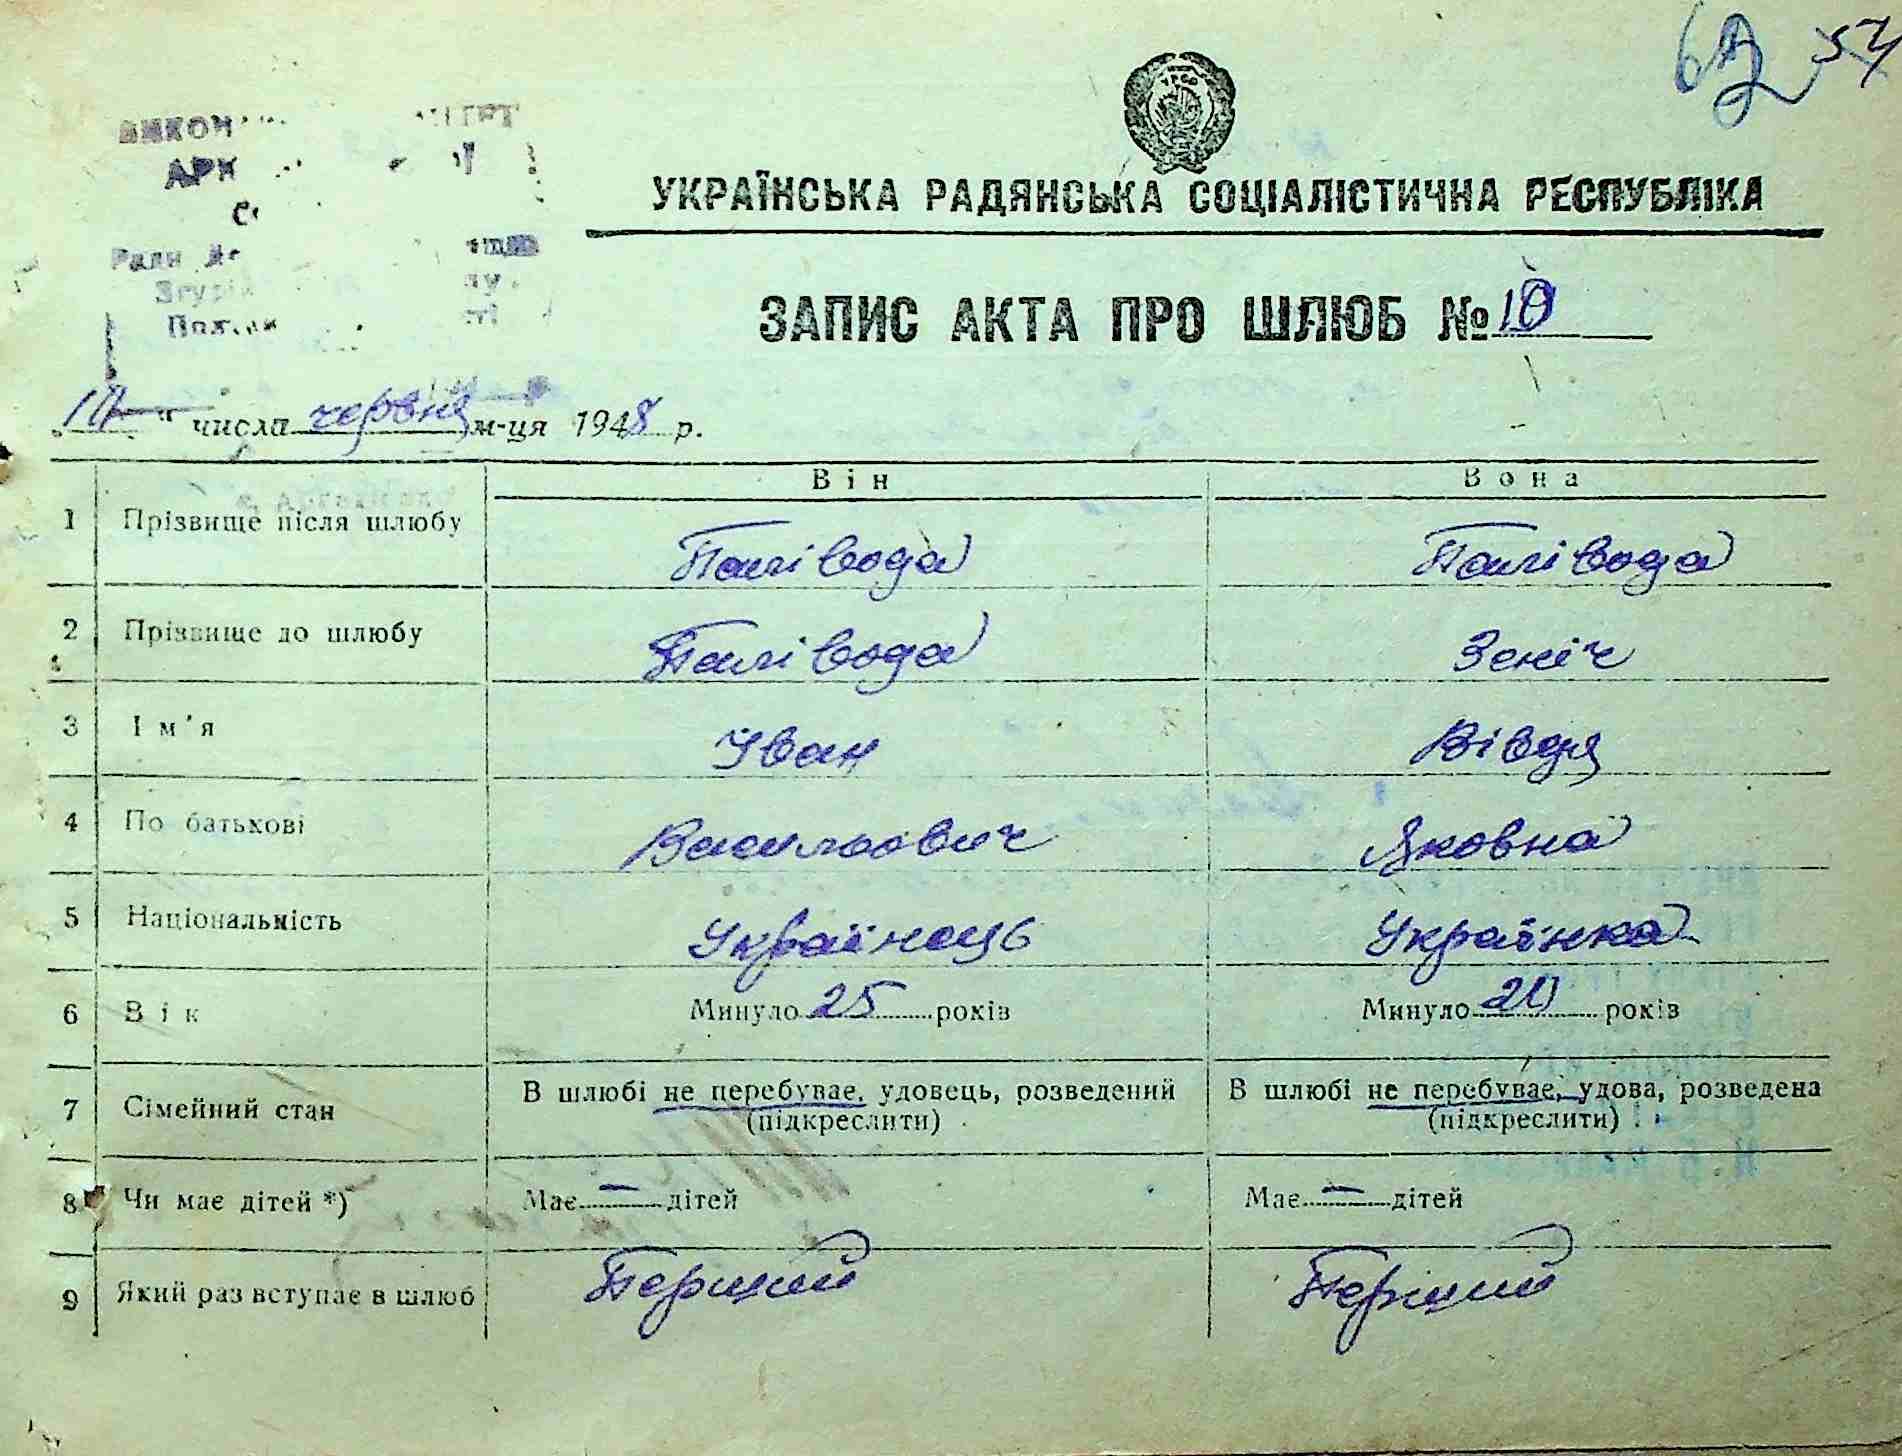 62 54
УРСР
УКРАЇНСЬКА РАДЯНСЬКА СОЦІАЛІСТИЧНА РЕСПУБЛІКА
ЗАПИС АКТА ПРО ШЛЮБ № 10
„10“ числа червня м-ця 1948 р.
Він Вона
1 Прізвище після шлюбу Палівода Палівода
2 Прізвище до шлюбу Палівода Зеніч
3 Ім'я Іван Вівдя
4 По батькові Васильович Яковна
5 Національність Українець Українка
6 Вік Минуло 25 років Минуло 20 років
7 Сімейний стан В шлюбі не перебуває, удовець, розведений В шлюбі не перебуває, удова, розведена
(підкреслити) (підкреслити)
8 Чи має дітей *) Має — дітей Має — дітей
9 Який раз вступає в шлюб Перший Перший